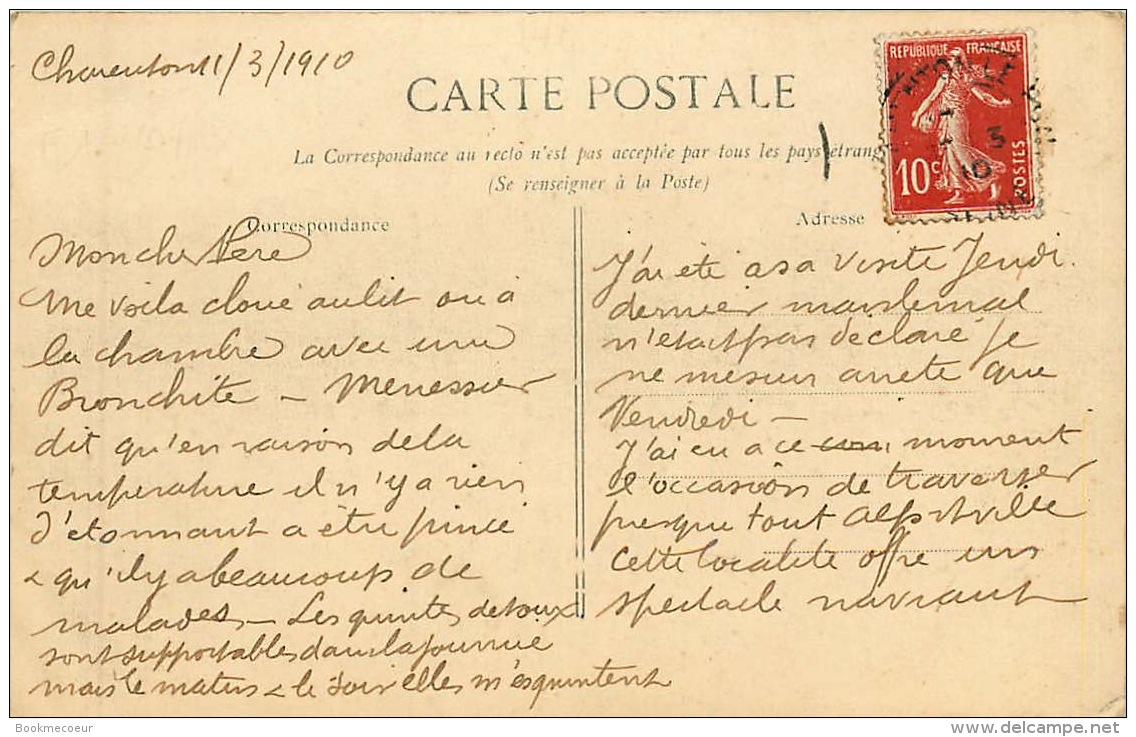 Charenton 11/3/1910
CARTE POSTALE
La Correspondance au recto n'est pas acceptée par tous les pays étrang
(Se renseigner à la Poste)
REPUBLIQUE FRANÇAISE
10c
POSTES
3
10
Correspondance
Mon cher Père
Me voila cloué au lit ou à
la chambre avec une
Bronchite – Menessier
dit qu'en raison de la
temperature il n'y a rien
d'étonnant a être pincé
& qu'il y a beaucoup de
malades – Les quintes de toux
sont supportables dans la journée
mais le matin & le soir elles m'esquintent
Adresse
J'ai été a sa visite Jeudi
dernier mais le mal
n'était pas déclaré je
ne me suis arrêté que
Vendredi –
J'ai eu a ce moment
l'occasion de traverser
presque tout Alfortville
Cette localité offre un
spectacle navrant
Bookmecoeur
www.delcampe.net